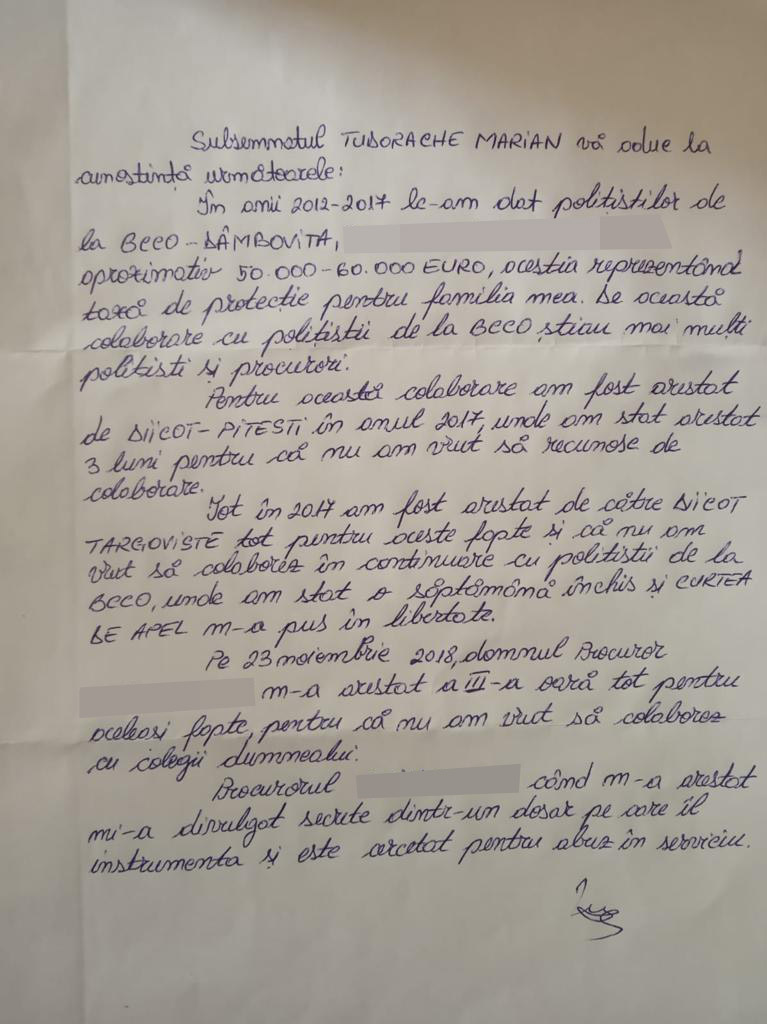 Subsemnatul TUDORACHE MARIAN vă aduc la
cunostință următoarele:
În anii 2012-2017 le-am dat politistilor de
la BCCO-DÂMBOVITA,
aproximativ 50.000-60.000 EURO, acestia reprezentând
taxă de protecție pentru familia mea. De această
colaborare cu politistii de la BCCO știau mai mulți
politisti și procurori.
Pentru această colaborare am fost arestat
de DIICOT-PITESTI în anul 2017, unde am stat arestat
3 luni pentru că nu am vrut să recunosc de
colaborare.
Tot în 2017 am fost arestat de către DIICOT
TARGOVISTE tot pentru aceste fapte și că nu am
vrut să colaborez în continuare cu politistii de la
BCCO, unde am stat o săptămână închis și CURTEA
DE APEL m-a pus în libertate.
Pe 23 noiembrie 2018, domnul Procuror
m-a arestat a III-a oară tot pentru
aceleasi fapte, pentru că nu am vrut să colaborez
cu colegii dumnealui.
Procurorul când m-a arestat
mi-a divulgat secrete dintr-un dosar pe care îl
instrumenta și este cercetat pentru abuz în serviciu.